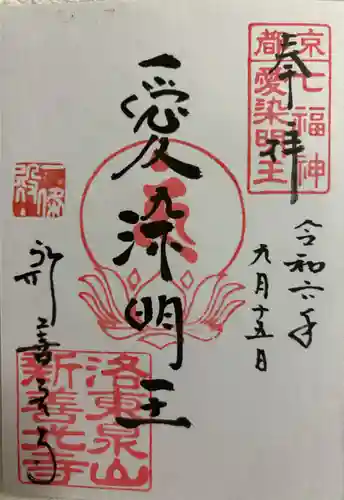 奉拝
京
七福神
都
愛染明王
令和六年
九月十五日
愛染明王
新善光寺
洛東泉山
新善光寺